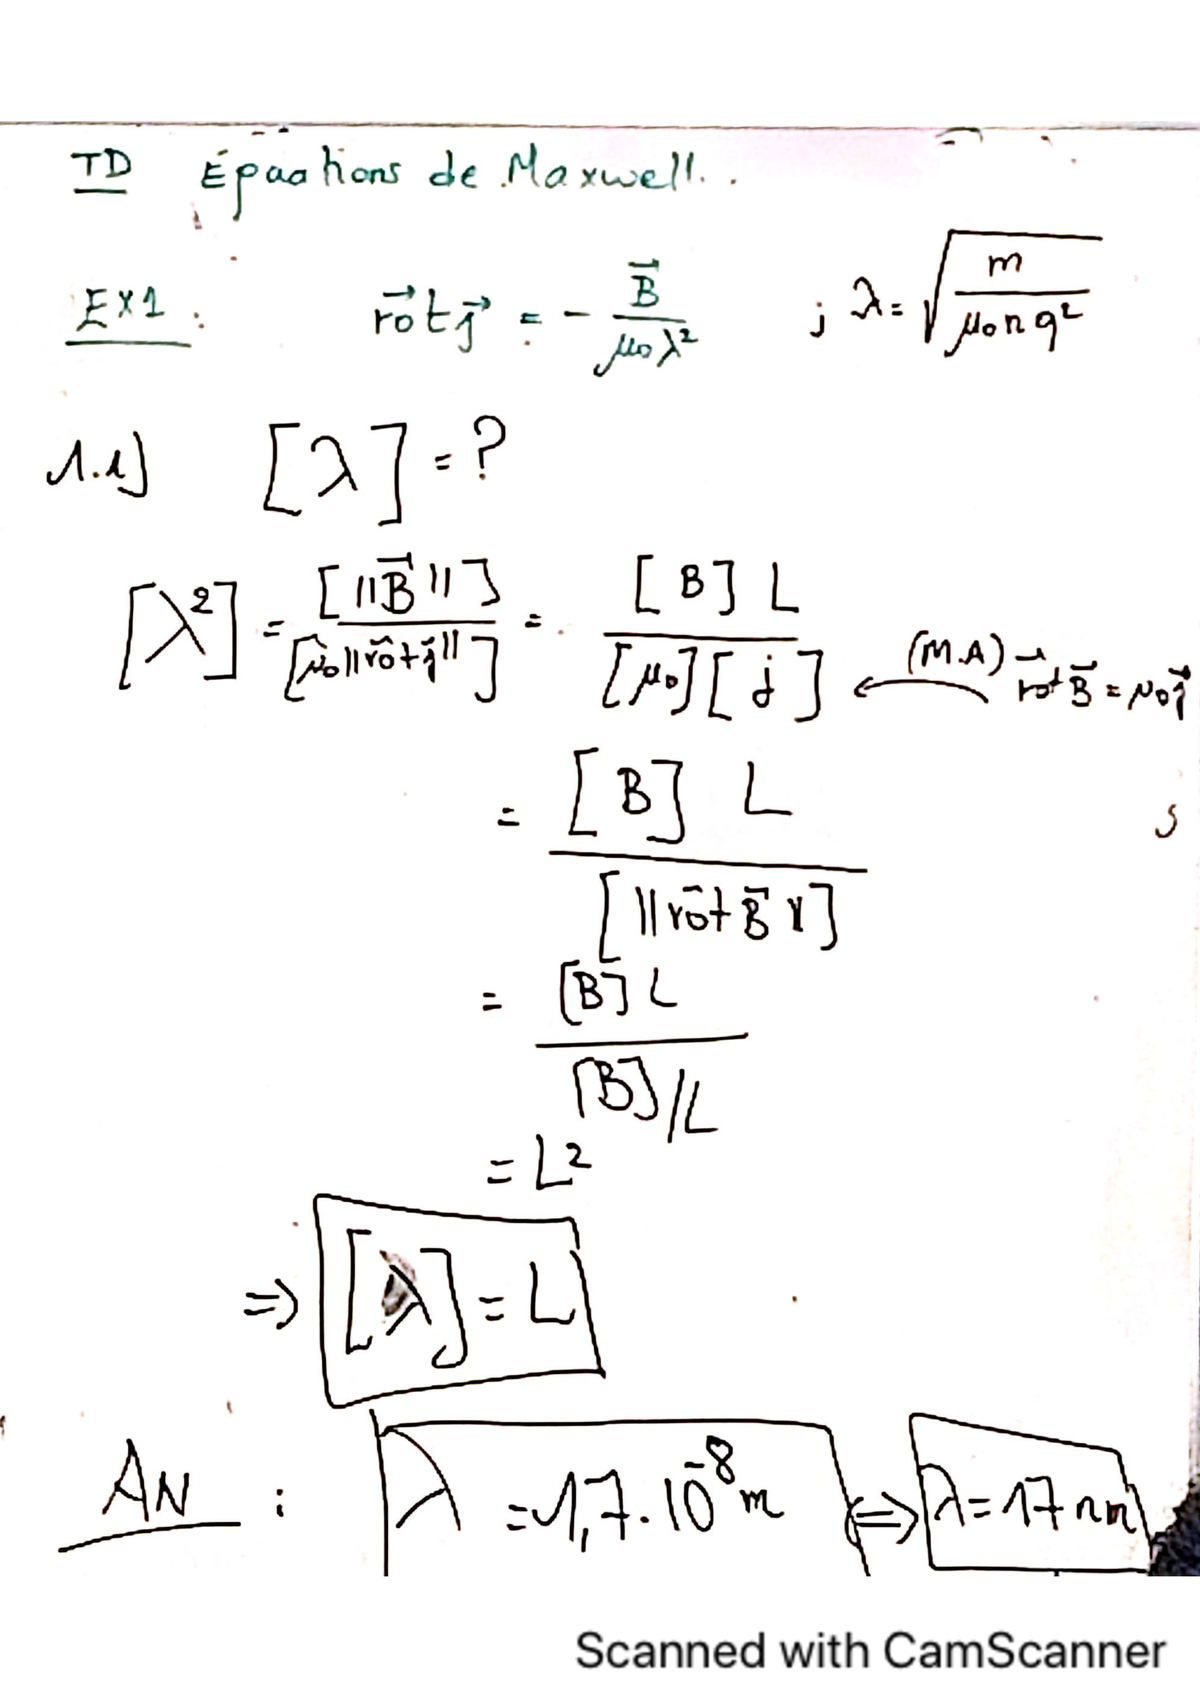 TD Équations de Maxwell.
Ex1: rot⃗ j⃗ = - B⃗ / μ₀λ² ; λ = √(m / μ₀nq²)
1.1) [λ] = ?
[λ²] = [||B⃗||] / [μ₀||rot⃗ j⃗||] = [B] L / [μ₀][j] ← (M.A) rot⃗ B⃗ = μ₀j⃗
= [B] L / [||rot⃗ B⃗||]
= [B] L / [B]/L
= L²
⇒ [λ] = L
AN : λ = 1,7.10⁻⁸ m ⇔ λ = 17 nm
Scanned with CamScanner